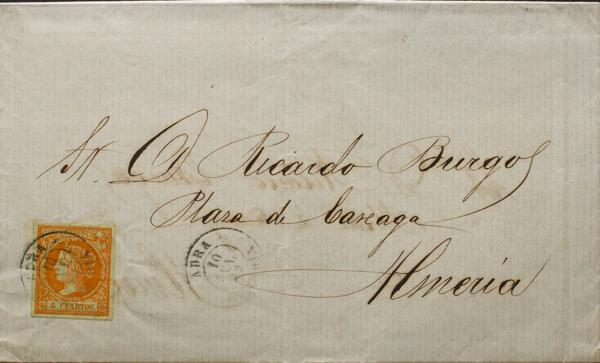 Sr. D. Ricardo Burgos
Plaza de Careaga
Almería
ADRA
10
ADRA
10
4 CUARTOS.